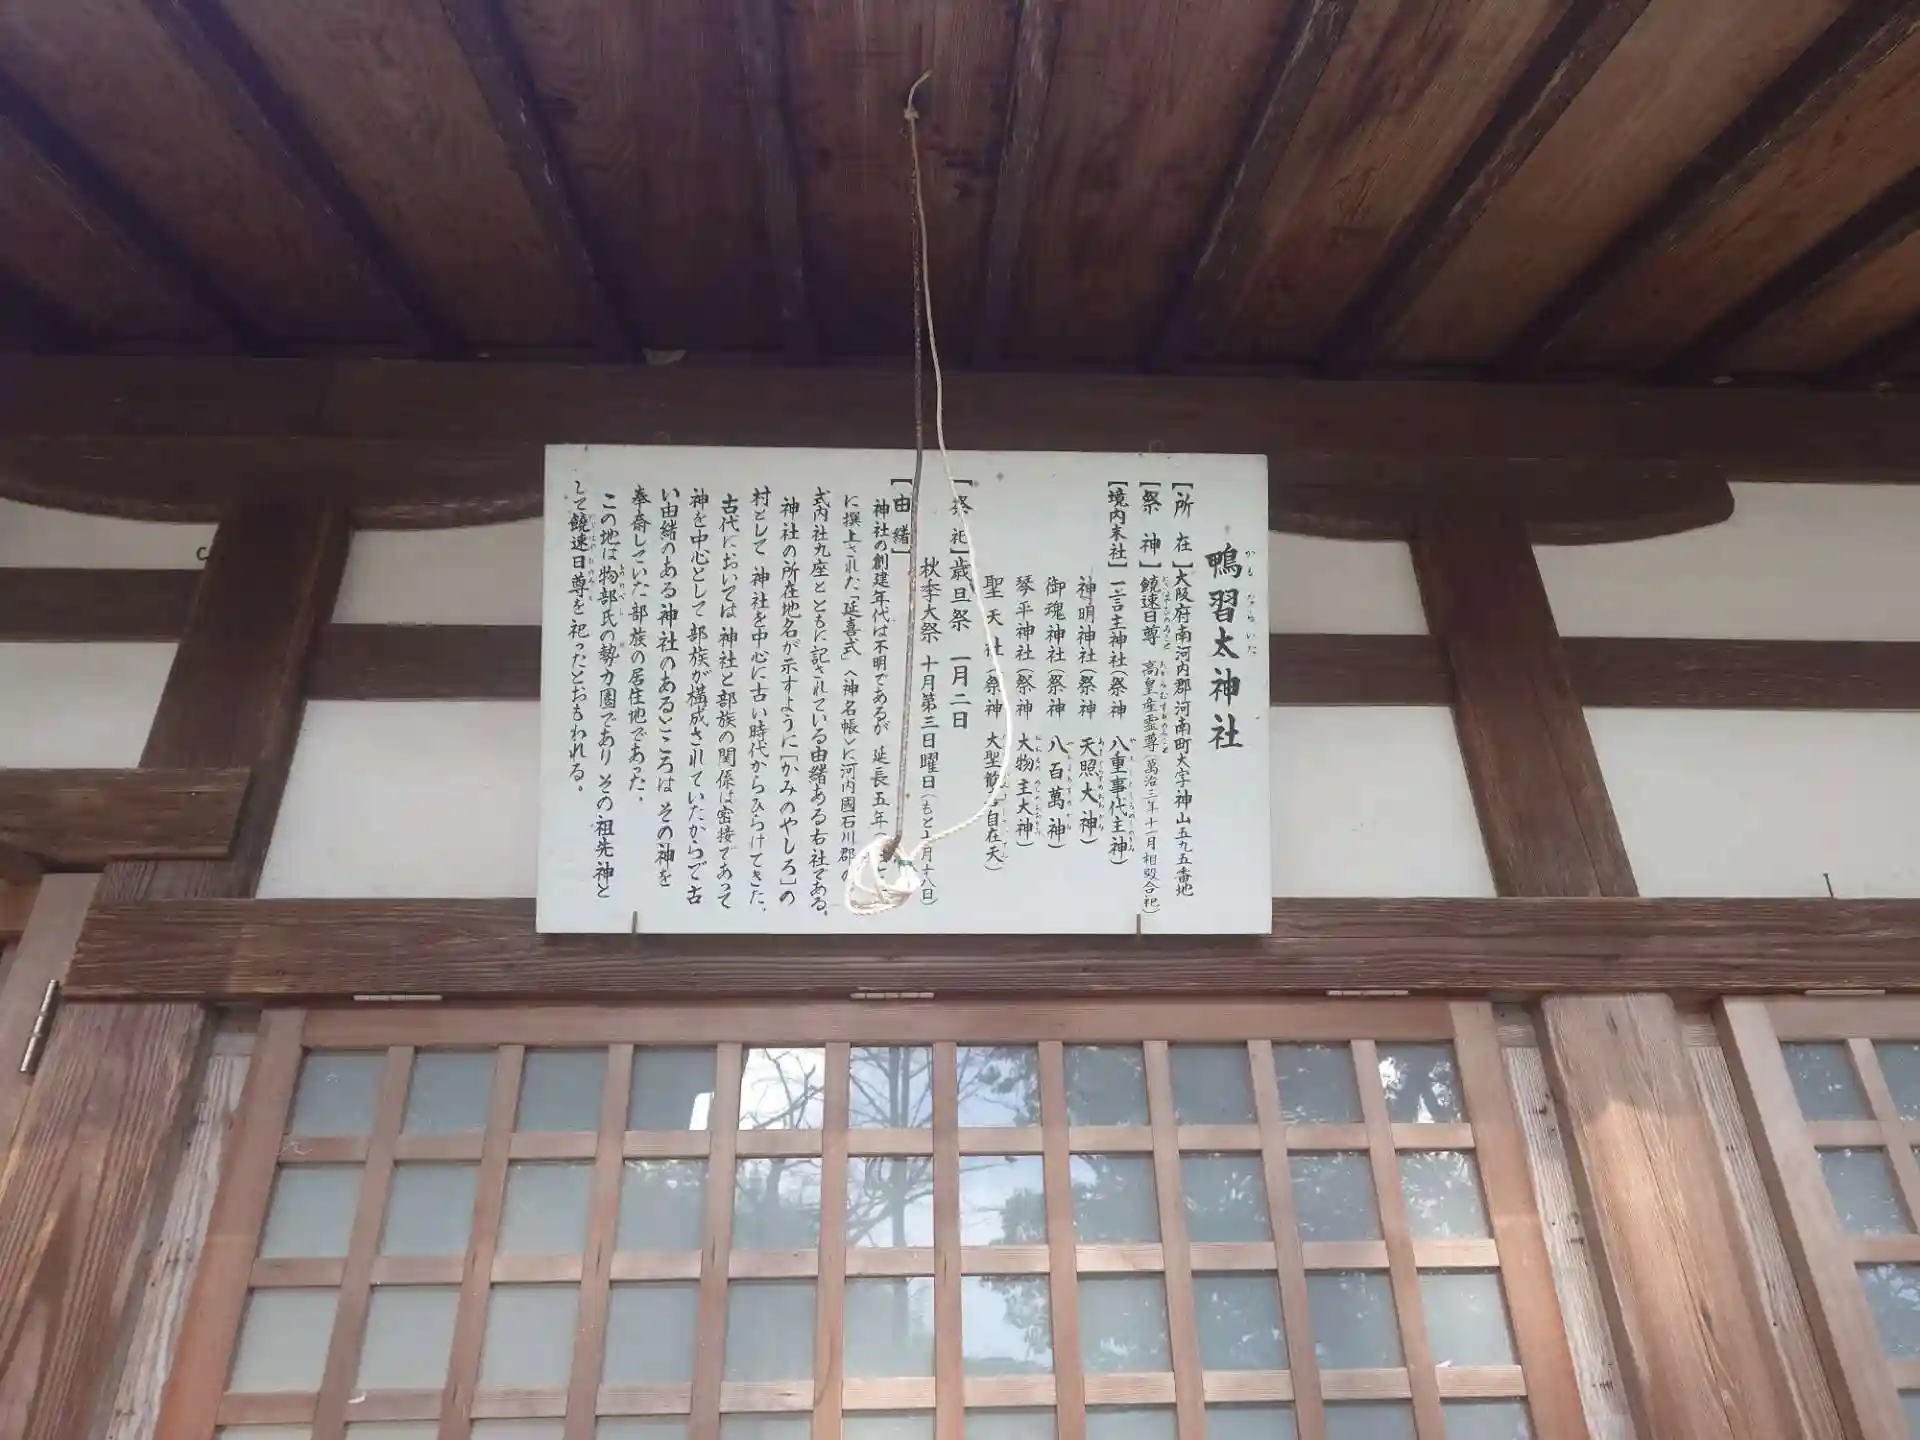 鴨習太神社
かも ならいた
【所在】大阪府南河内郡河南町大字神山五九五番地
【祭神】饒速日尊 高皇産霊尊(萬治三年十一月相殿合祀)
【境内末社】一言主神社(祭神 八重事代主神)
神明神社(祭神 天照大神)
御魂神社(祭神 八百萬神)
琴平神社(祭神 大物主大神)
聖天社(祭神 大聖歓喜自在天)
【祭祀】歳旦祭 一月二日
秋季大祭 十月第三日曜日(もと十月十八日)
【由緒】
神社の創建年代は不明であるが 延長五年
に撰上された「延喜式」〈神名帳〉に河内國石川郡の
式内社九座とともに記されている由緒ある右社である。
神社の所在地名が示すように「かみのやしろ」の
村として 神社を中心に古い時代からひらけてきた。
古代においては神社と部族の関係は密接であって
神を中心として部族が構成されていたからで古
い由緒のある神社のあるところは その神を
奉斎していた部族の居住地であった。
この地は物部氏の勢力圏であり その祖先神と
して饒速日尊を祀ったとおもわれる。